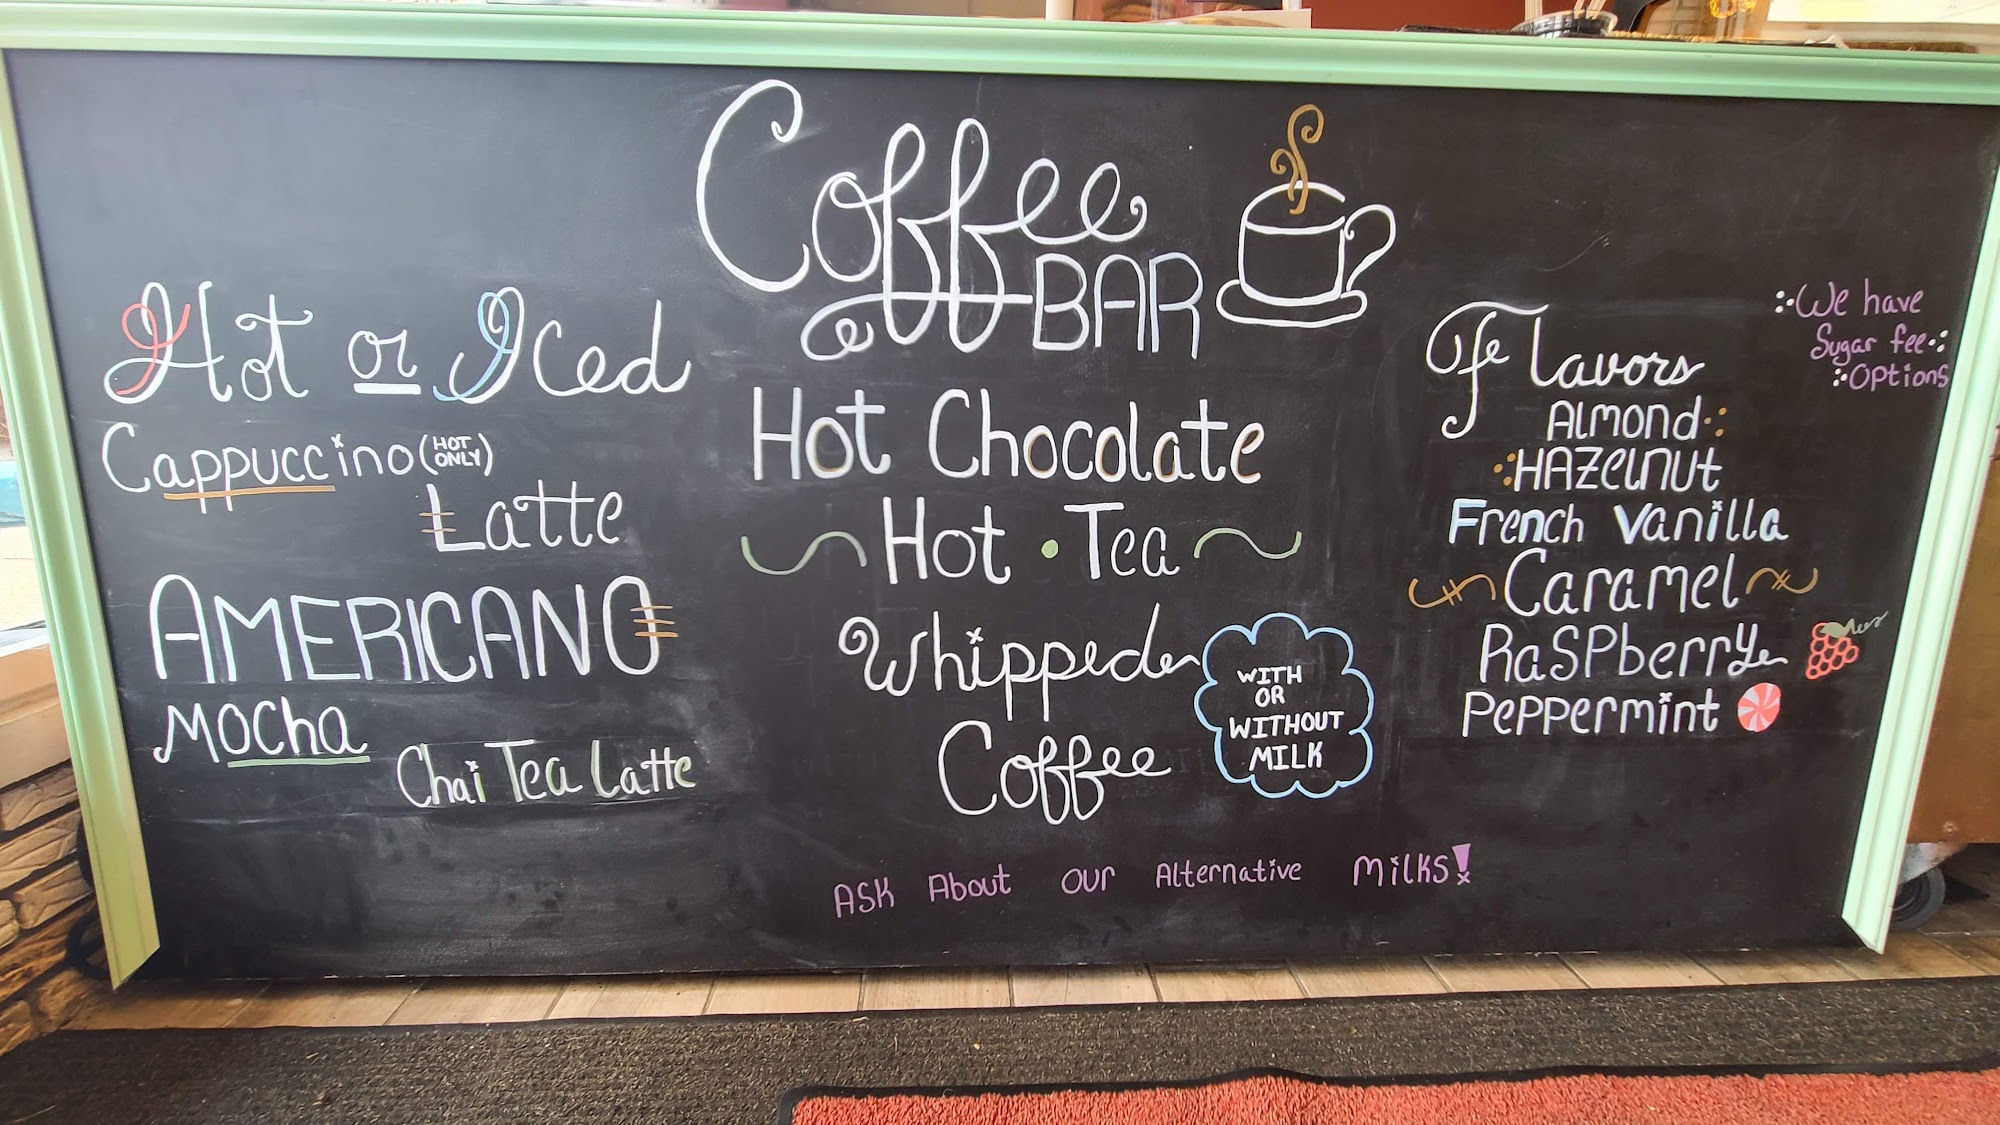 Coffee
BAR
Hot or Iced
Cappuccino (HOT ONLY)
Latte
AMERICANO
Mocha
Chai Tea Latte
Hot Chocolate
Hot • Tea
Whipped
Coffee
WITH
OR
WITHOUT
MILK
ASK About our Alternative Milks!
Flavors
Almond
HAZelnut
French Vanilla
Caramel
RaSPberry
Peppermint
We have
Sugar fee
Options